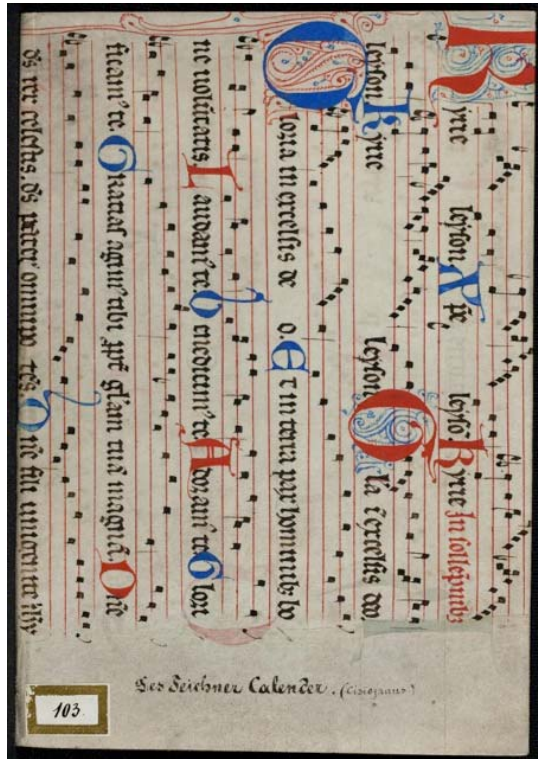 Kyrie leyson Xp̄e leysō. Kyrie In sollēpnibꝫ
leyson Kyrie leyson Gl̄a ī excelsis deo.
Gloria in excelsis de o Et in terra pax hominibꝫ bo
ne uolūtatis Laudamꝰ te Benedicimꝰ te Adoramꝰ te Glori
ficamꝰ te Gratias agimꝰ tibi ꝓpt̄ gl̄am tuā magnā Dn̄e
ds̄ rex celestis ds̄ pater omnipo tēs. Dn̄e fili unigenite ih̄u
Des Teichner Calender. (Cisiojanus)
103.